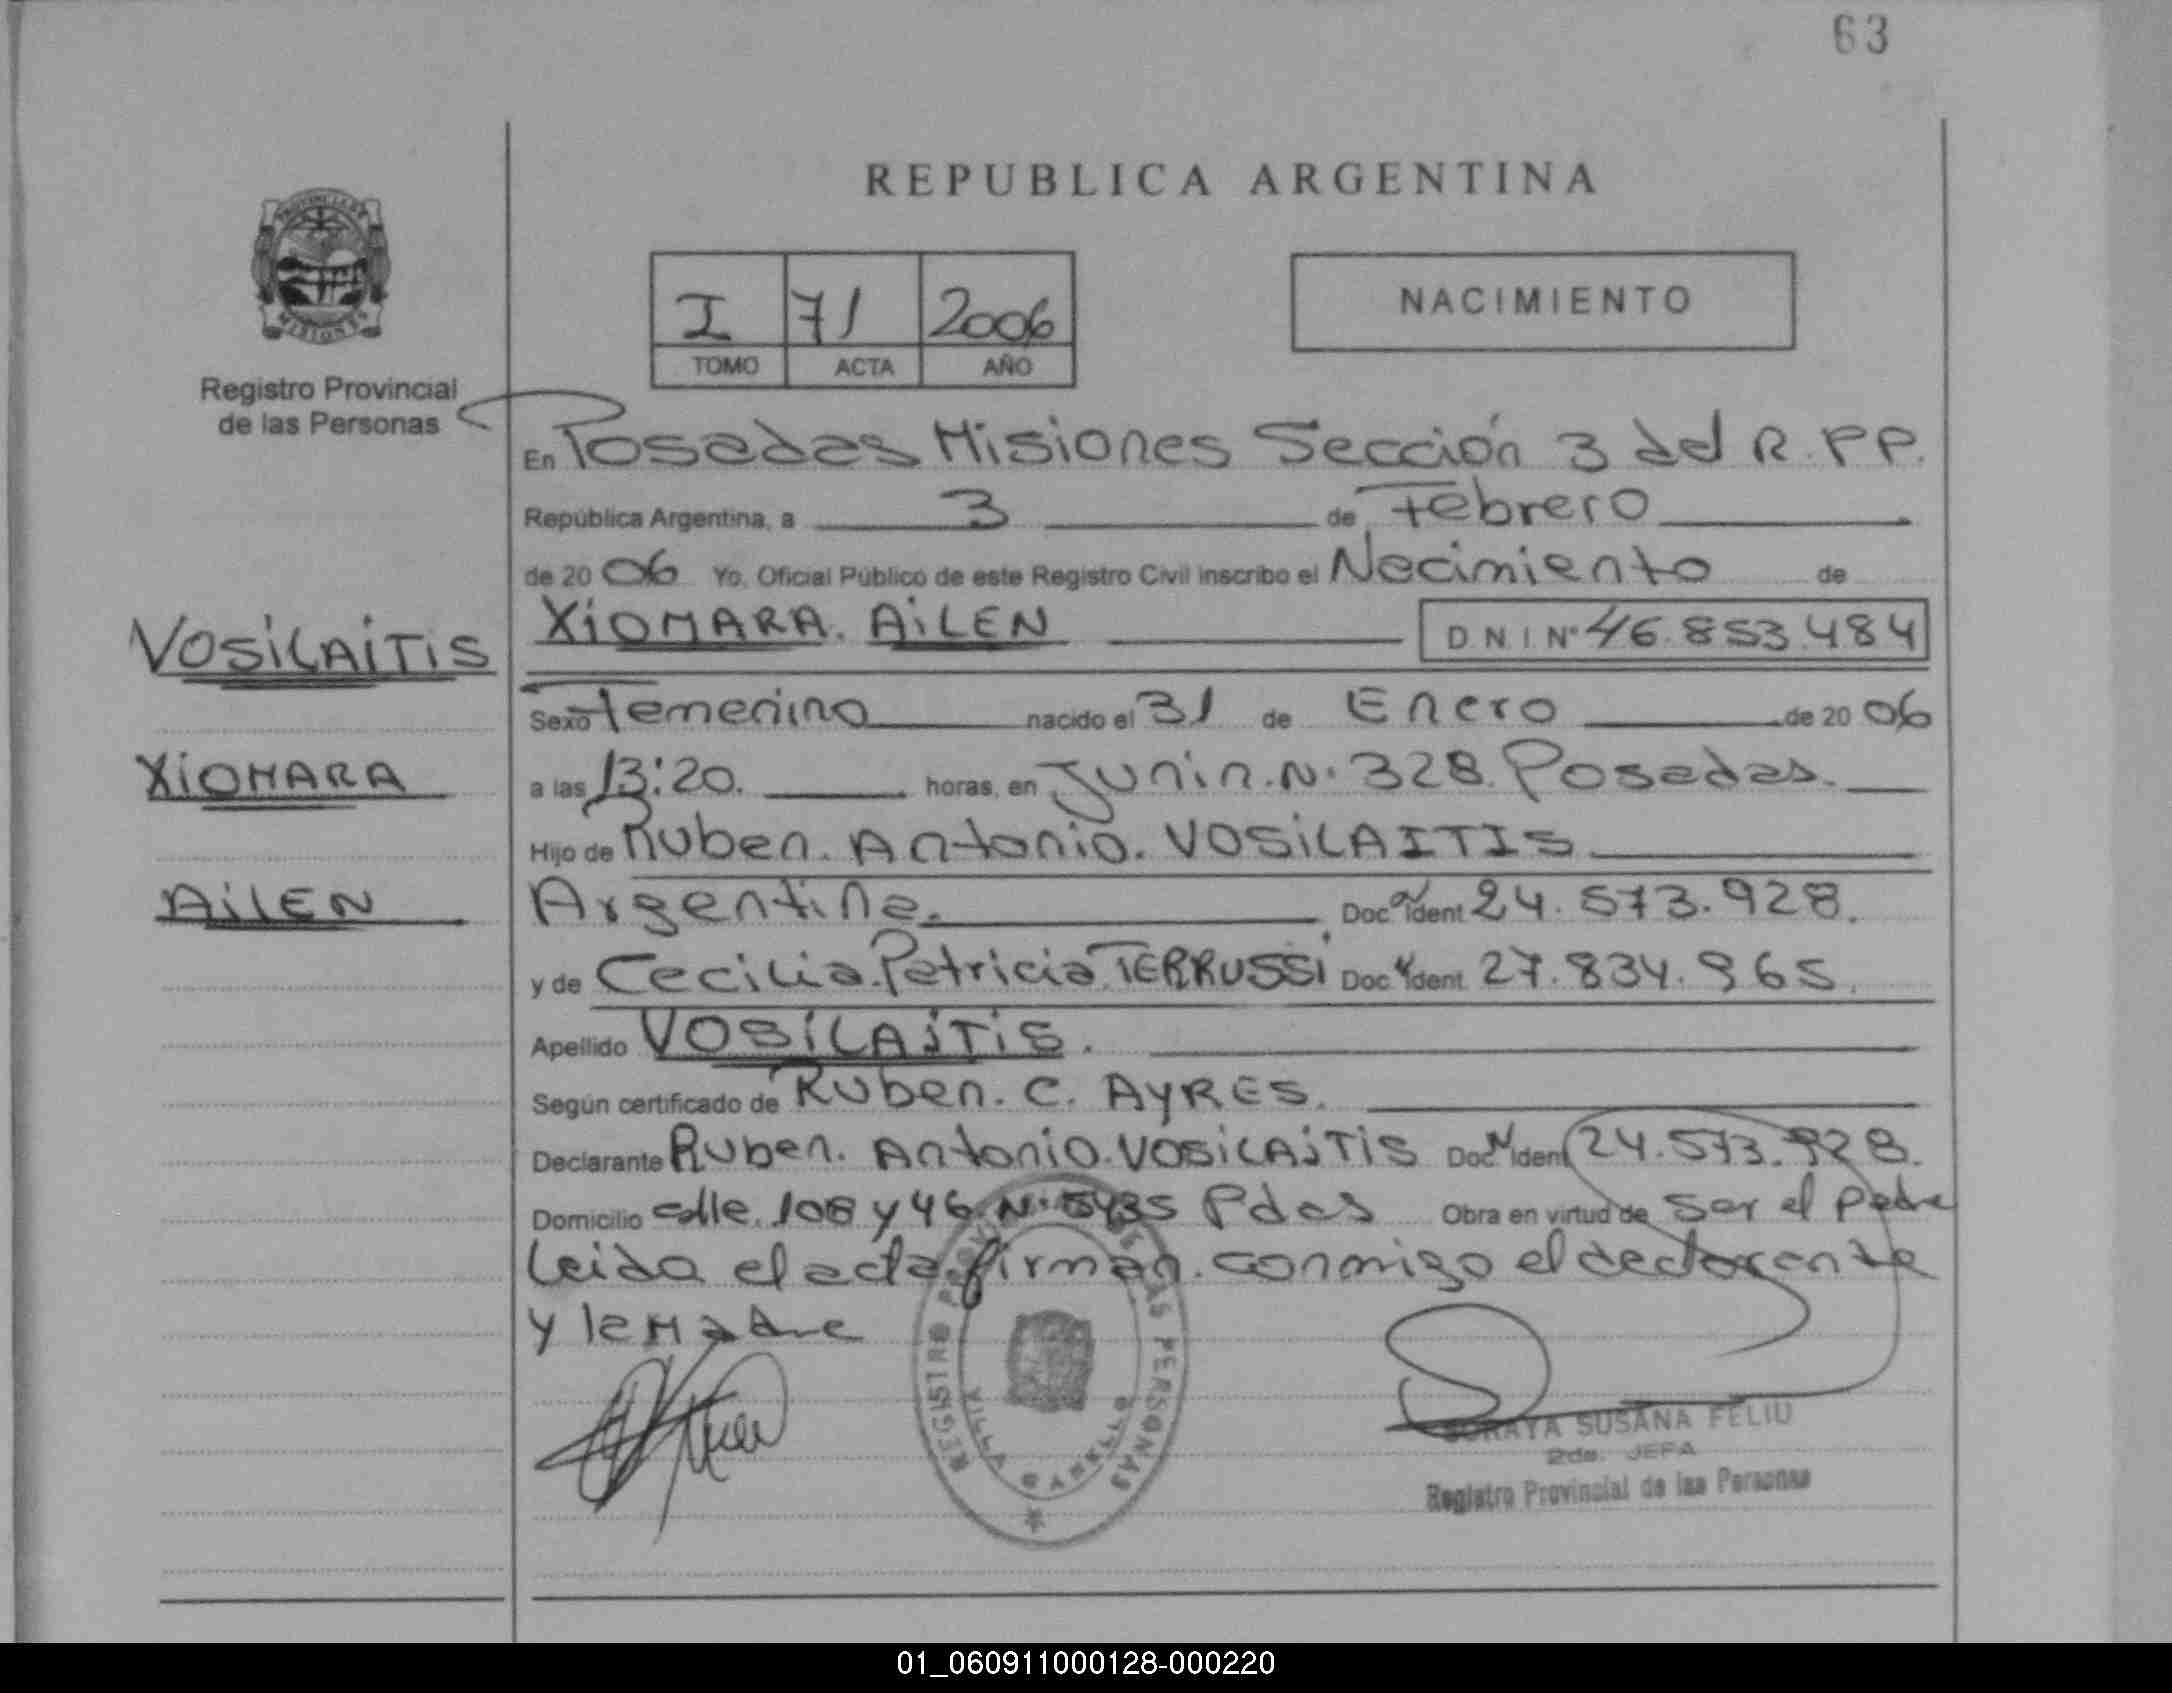 63
REPUBLICA ARGENTINA
PROVINCIA DE
MISIONES
I 71 2006
TOMO ACTA AÑO
NACIMIENTO
Registro Provincial
de las Personas
En Posadas Misiones Sección 3 del R.P.P.
República Argentina, a 3 de Febrero
de 20 06 Yo, Oficial Público de este Registro Civil inscribo el Nacimiento de
XiOMARA. AiLEN D.N.I. Nº 46.853.484
VOSiLAiTiS
XiOMARA
AiLEN
Sexo Femenino nacido el 31 de Enero de 20 06
a las 13:20. horas, en Junin. N. 328. Posadas.
Hijo de Ruben. Antonio. VOSiLAITIS
Argentina. Doc. Ident 24.573.928.
y de Cecilia. Patricia TERRUSSi Doc. Ident. 27.834.965.
Apellido VOSiLAiTiS.
Según certificado de Ruben. C. AyRES.
Declarante Ruben. Antonio. VOSiLAiTIS Doc. Ident 24.573.928.
Domicilio calle. 108 y 46. N. 5435 Pdas Obra en virtud de ser el padre
Leida el acta firman. conmigo el declarante
y la Madre
REGISTRO PROVINCIAL DE LAS PERSONAS
VILLA CABELLO
SORAYA SUSANA FELIU
2da. JEFA
Registro Provincial de las Personas
01_060911000128-000220